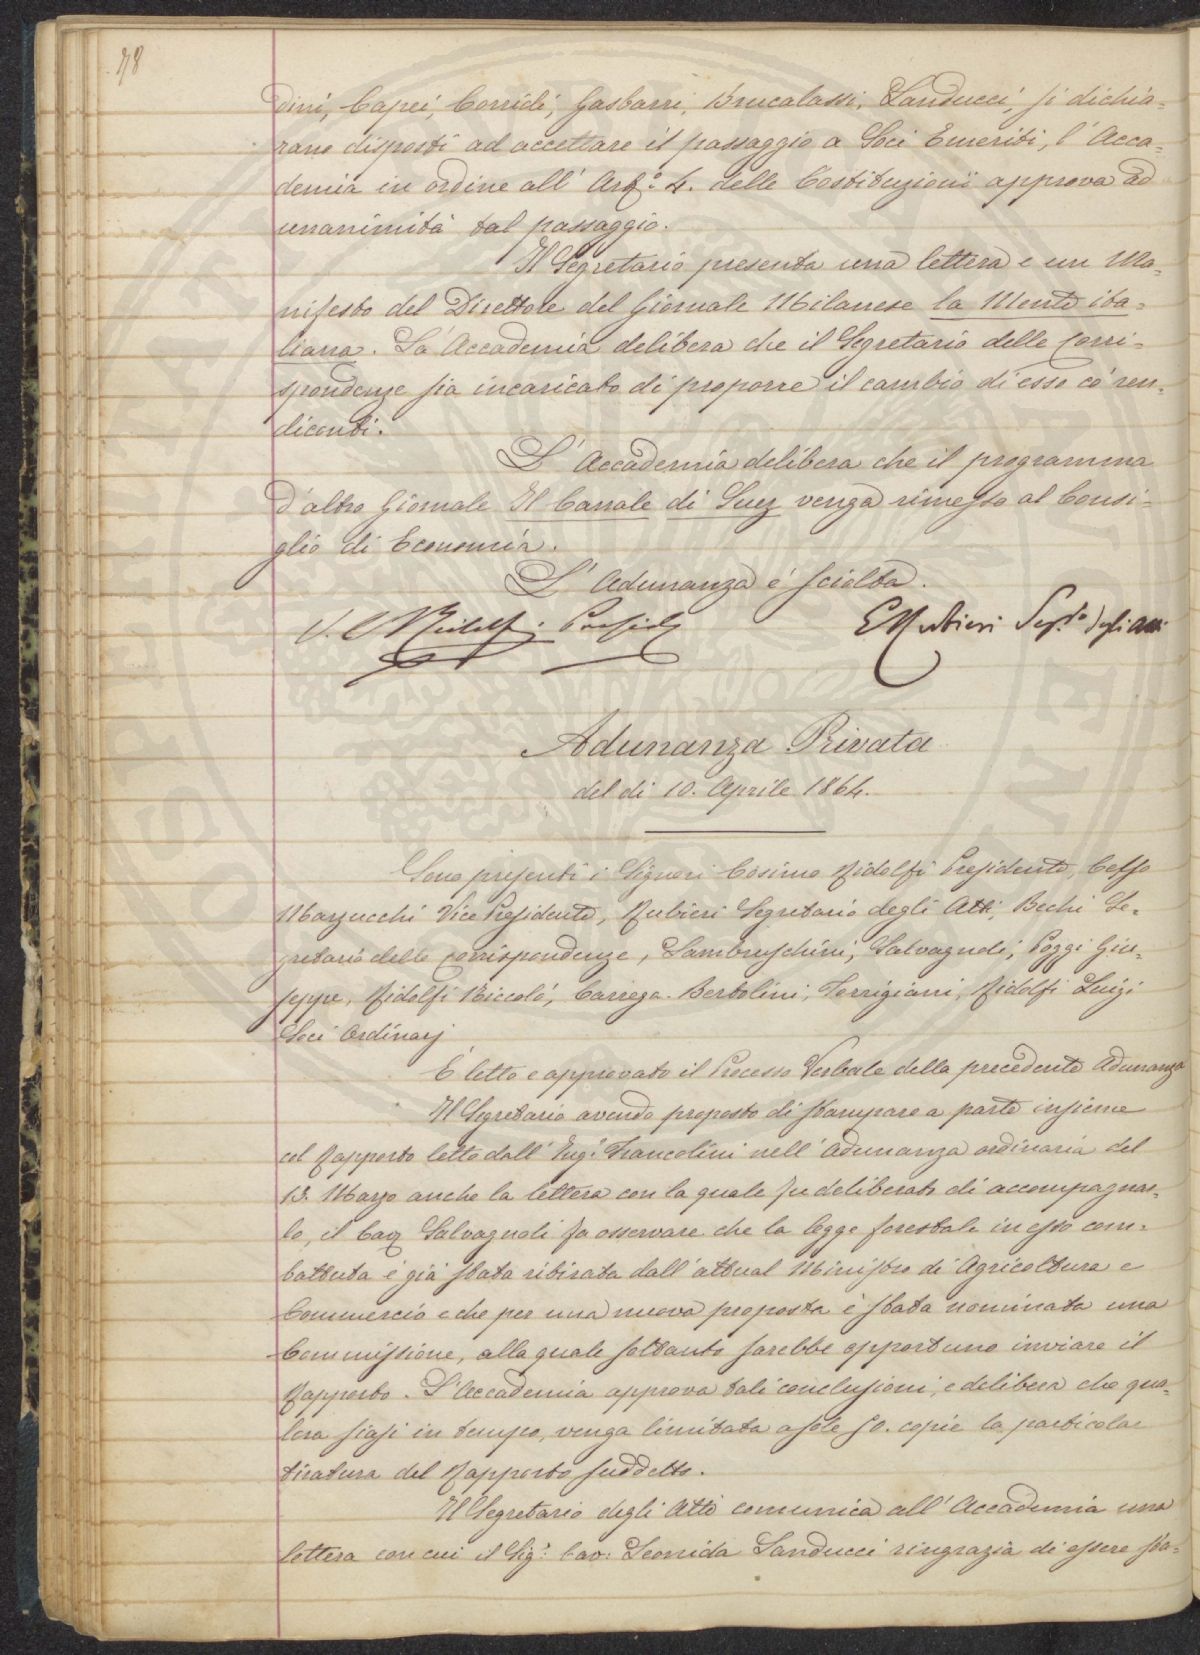 78
dini, Capei, Corridi, Gasbarri, Brucalassi, Landucci, si dichia=
rano disposti ad accettare il passaggio a Soci Emeriti, l'Acca=
demia in ordine all'Art.° 4. delle Costituzioni approva ad
unanimità tal passaggio.
Il Segretario presenta una lettera e un Ma=
nifesto del Direttore del Giornale Milanese la Mente ita=
liana. L'Accademia delibera che il Segretario delle Corri=
spondenze sia incaricato di proporre il cambio di esso co' ren=
diconti.
L'Accademia delibera che il programma
d'altro Giornale Il Canale di Suez venga rimesso al Consi=
glio di Economia.
L'Adunanza è sciolta.
C Ridolfi Presid
E Rubieri Seg.rio degli Atti
Adunanza Privata
del dì 10. Aprile 1864.
Sono presenti i Signori Cosimo Ridolfi Presidente, Celso
Marzucchi Vice Presidente, Rubieri Segretario degli Atti, Bechi Se=
gretario delle Corrispondenze, Lambruschini, Salvagnoli, Poggi Giu=
seppe, Ridolfi Niccolò, Carrega-Bertolini, Torrigiani, Ridolfi Luigi
Soci Ordinarj
È letto e approvato il Processo Verbale della precedente Adunanza
Il Segretario avendo proposto di stampare a parte insieme
col Rapporto letto dall'Ing.e Francolini nell'Adunanza ordinaria del
13. Marzo anche la lettera con la quale fu deliberato di accompagnar=
lo, il Cav Salvagnoli fa osservare che la legge forestale in esso com=
battuta è già stata ritirata dall'attual Ministro di Agricoltura e
Commercio e che per una nuova proposta è stata nominata una
Commissione, alla quale soltanto sarebbe opportuno inviare il
Rapporto. L'Accademia approva tali conclusioni, e delibera che qua=
lora siasi in tempo, venga limitata a sole 50. copie la particolar
tiratura del Rapporto suddetto.
Il Segretario degli Atti comunica all'Accademia una
lettera con cui il Sig.r Cav: Leonida Landucci ringrazia di essere sta=